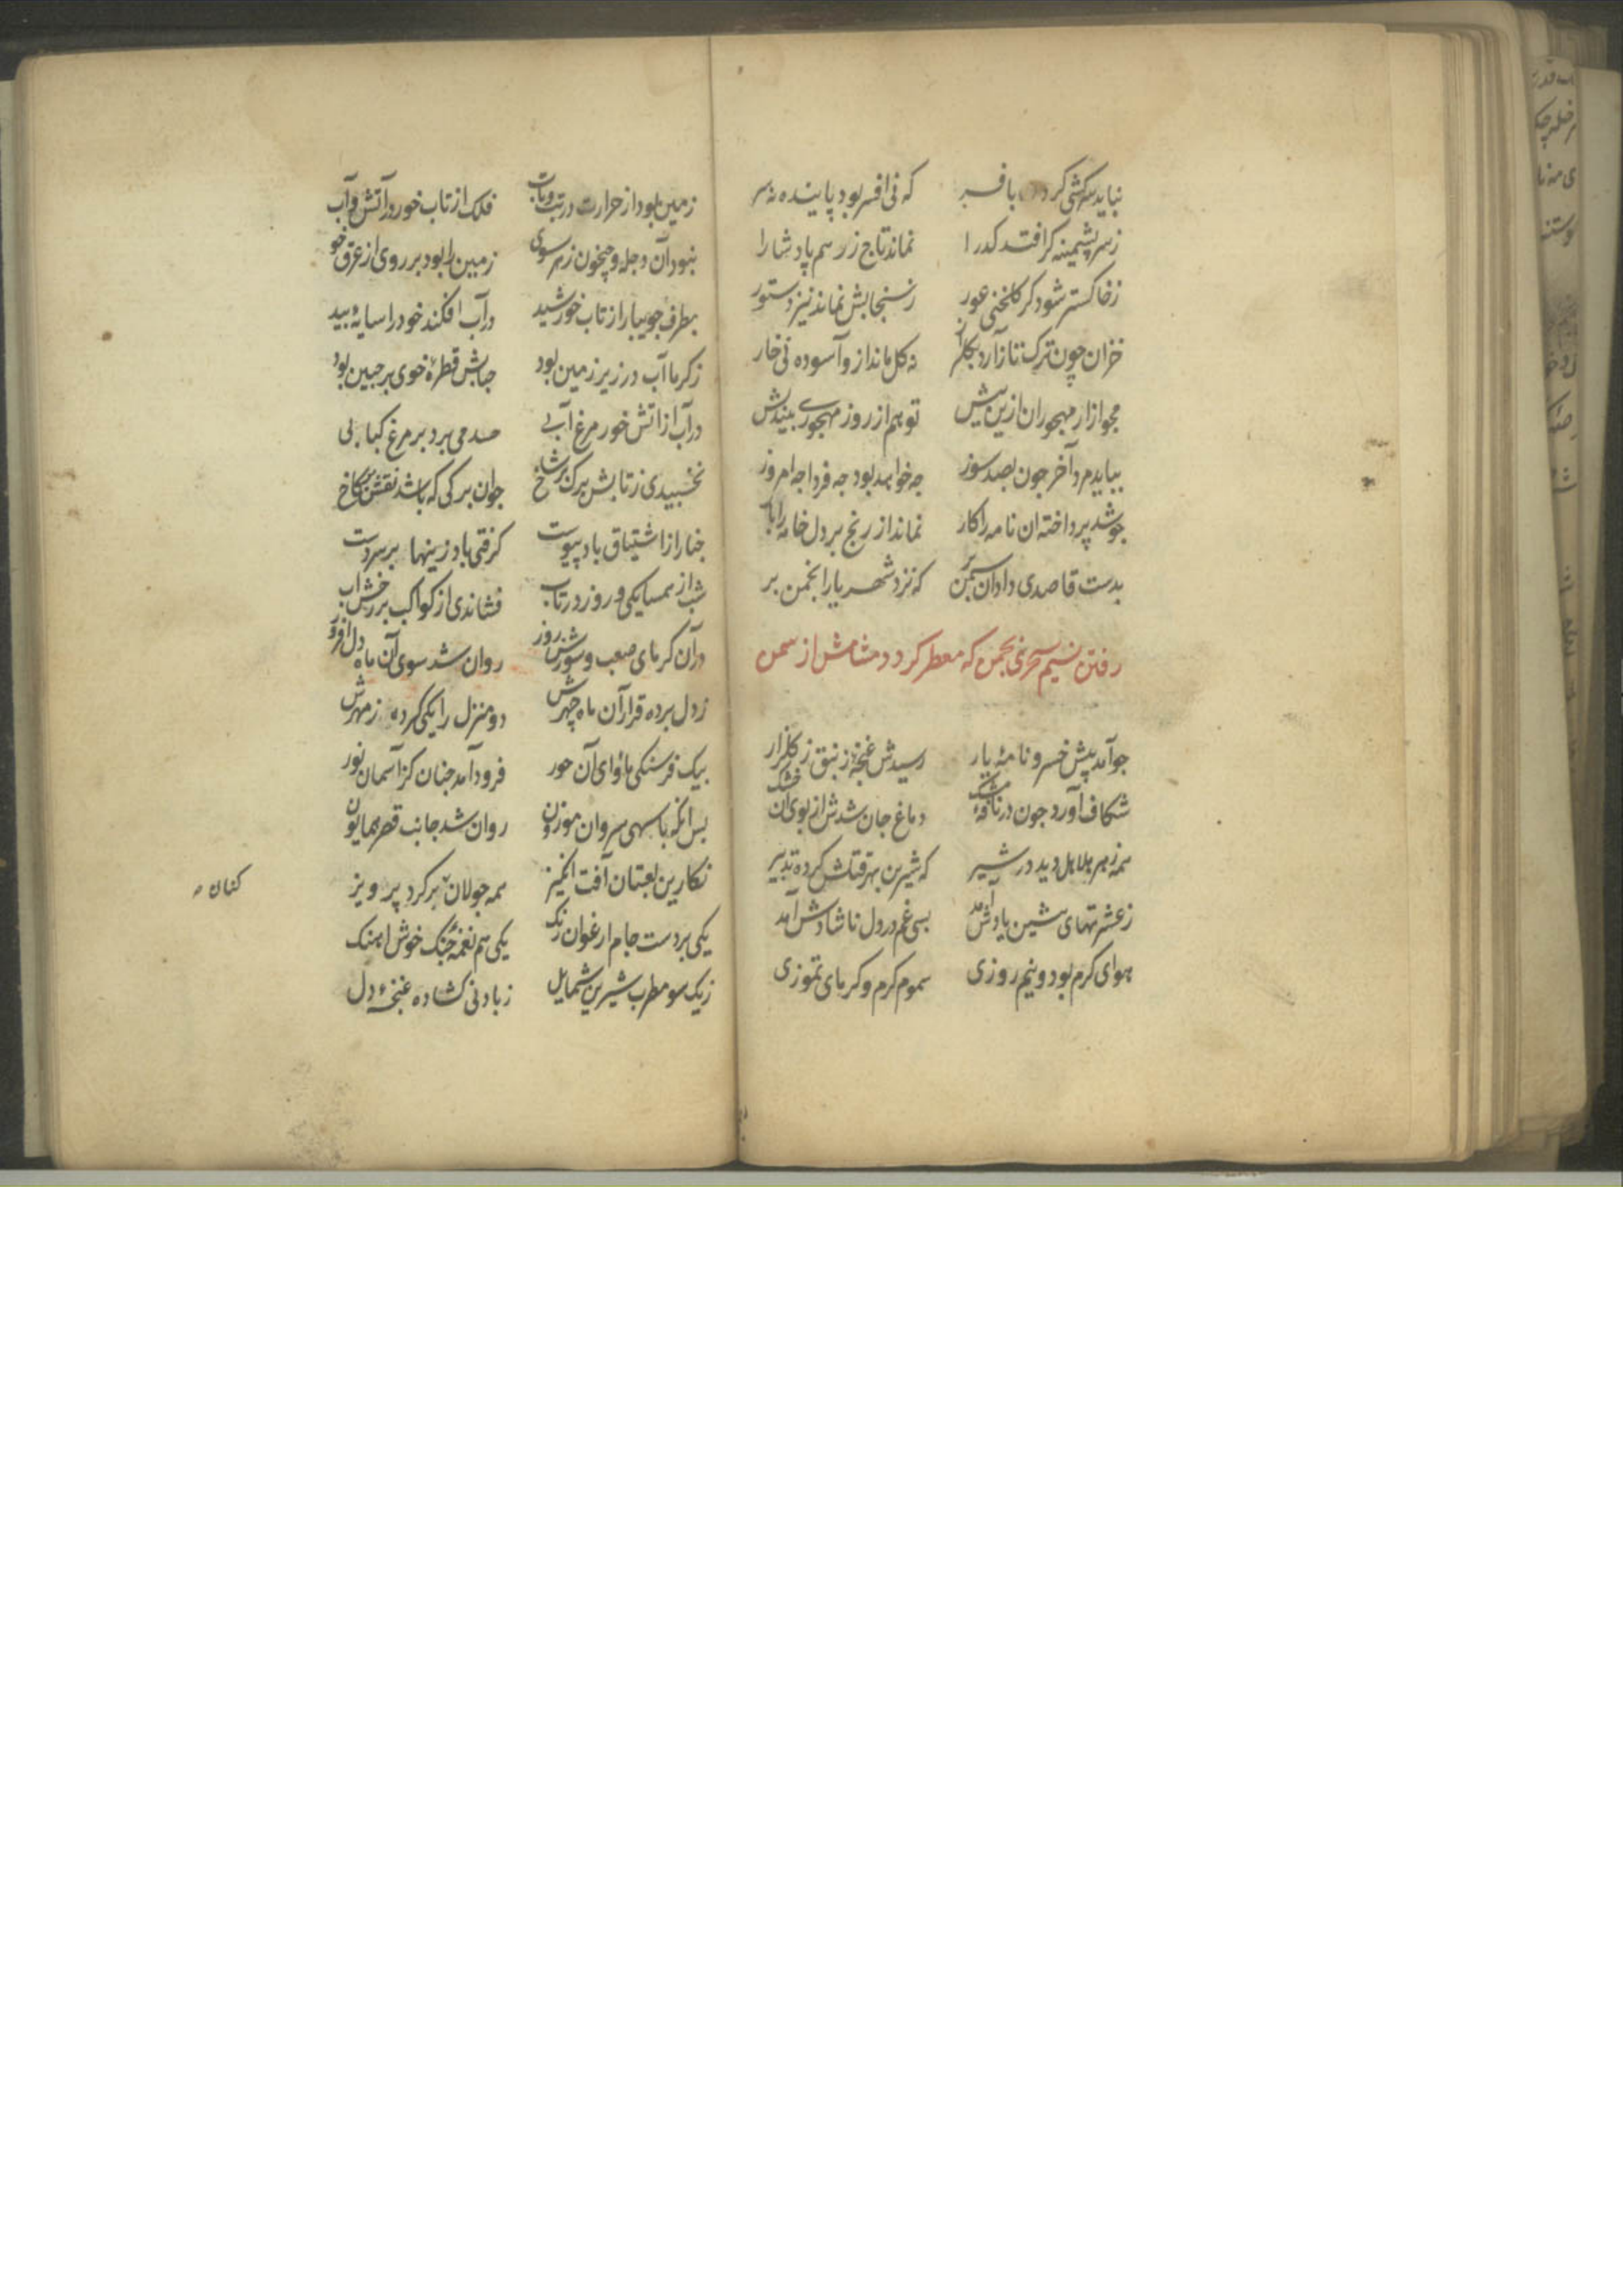 نباید سرکشی کردن بافسر که نی افسر بود پاینده نه سر
ز سر پشمینه کر افتد کدا را نماند تاج زر هم پادشا را
ز خاکستر شود کر کلخنی عور ز سنجابش نماند نیز دستور
خزان چون ترک تاز آرد بکلزار نه کل ماند ازو آسوده نی خار
مجو آزار مهجوران ازین بیش تو هم از روز مهجوری بیندیش
بباید مرد آخر جون بصد سوز جه خواهد بود جه فردا جه امروز
جو شد پرداخته ان نامه را کار نماند از رنج بر دل خامه را بار
بدست قاصدی داد ان سمن بر که نزد شهریار انجمن بر
رفتن نسیم سحری بجمن که معطر کردد مشامش از سمن
جو آمد پیش خسرو نامهٔ یار رسیدش غنجهٔ زنبق ز کلزار
شکاف آورد جون در نافهٔ مشک دماغ جان شدش از بوی ان خشک
همه زهر هلاهل دید در شیر که شیرین بهر قتلش کرده تدبیر
ز عشرتهای شیرین یادش آمد بسی غم در دل ناشادش آمد
هوای کرم بود و نیم روزی سموم کرم و کرمای تموزی
زمین بود از حرارت در تب و تاب فلک از تاب خور در آتش و آب
نبود آن دجله و جیحون ز هر سوی زمین را بود بر روی از عرق خوی
بطرف جویبار از تاب خورشید در آب افکند خود را سایهٔ بید
ز کرما آب در زیر زمین بود حبابش قطرهٔ خوی بر جبین بود
در آب از اتش خور مرغ آبی حسد می برد بر مرغ کبابی
نخسبیدی ز تابش برک بر شاخ جوان برکی که باشد نقش بر کاخ
جنار از اشتیاق باد پیوست کرفتی باد زینها بر سر دست
شب از همسایکی روز در تاب فشاندی از کواکب بر رخش اب
در آن کرمای صعب و سوزش روز روان شد سوی آن ماه دل افروز
ز دل برده قرار آن ماه چهرش دو منزل را یکی کرده ز مهرش
بیک فرسنکی ماوای آن حور فرود آمد جنان کز آسمان نور
پس انکه با سهی سروان موزون روان شد جانب قصر همایون
نکارین لعبتان آفت انکیز همه جولان بر کرد پرویز
یکی بر دست جام ارغوان رنک یکی هم نغمهٔ جنک خوش اهنک
ز یک سو مطرب شیرین شمایل ز باد نی کشاده غنجهٔ دل
کنان